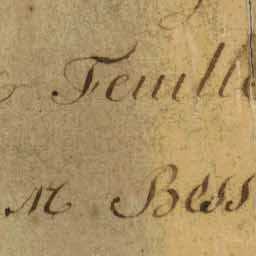 Feuille
M Bess